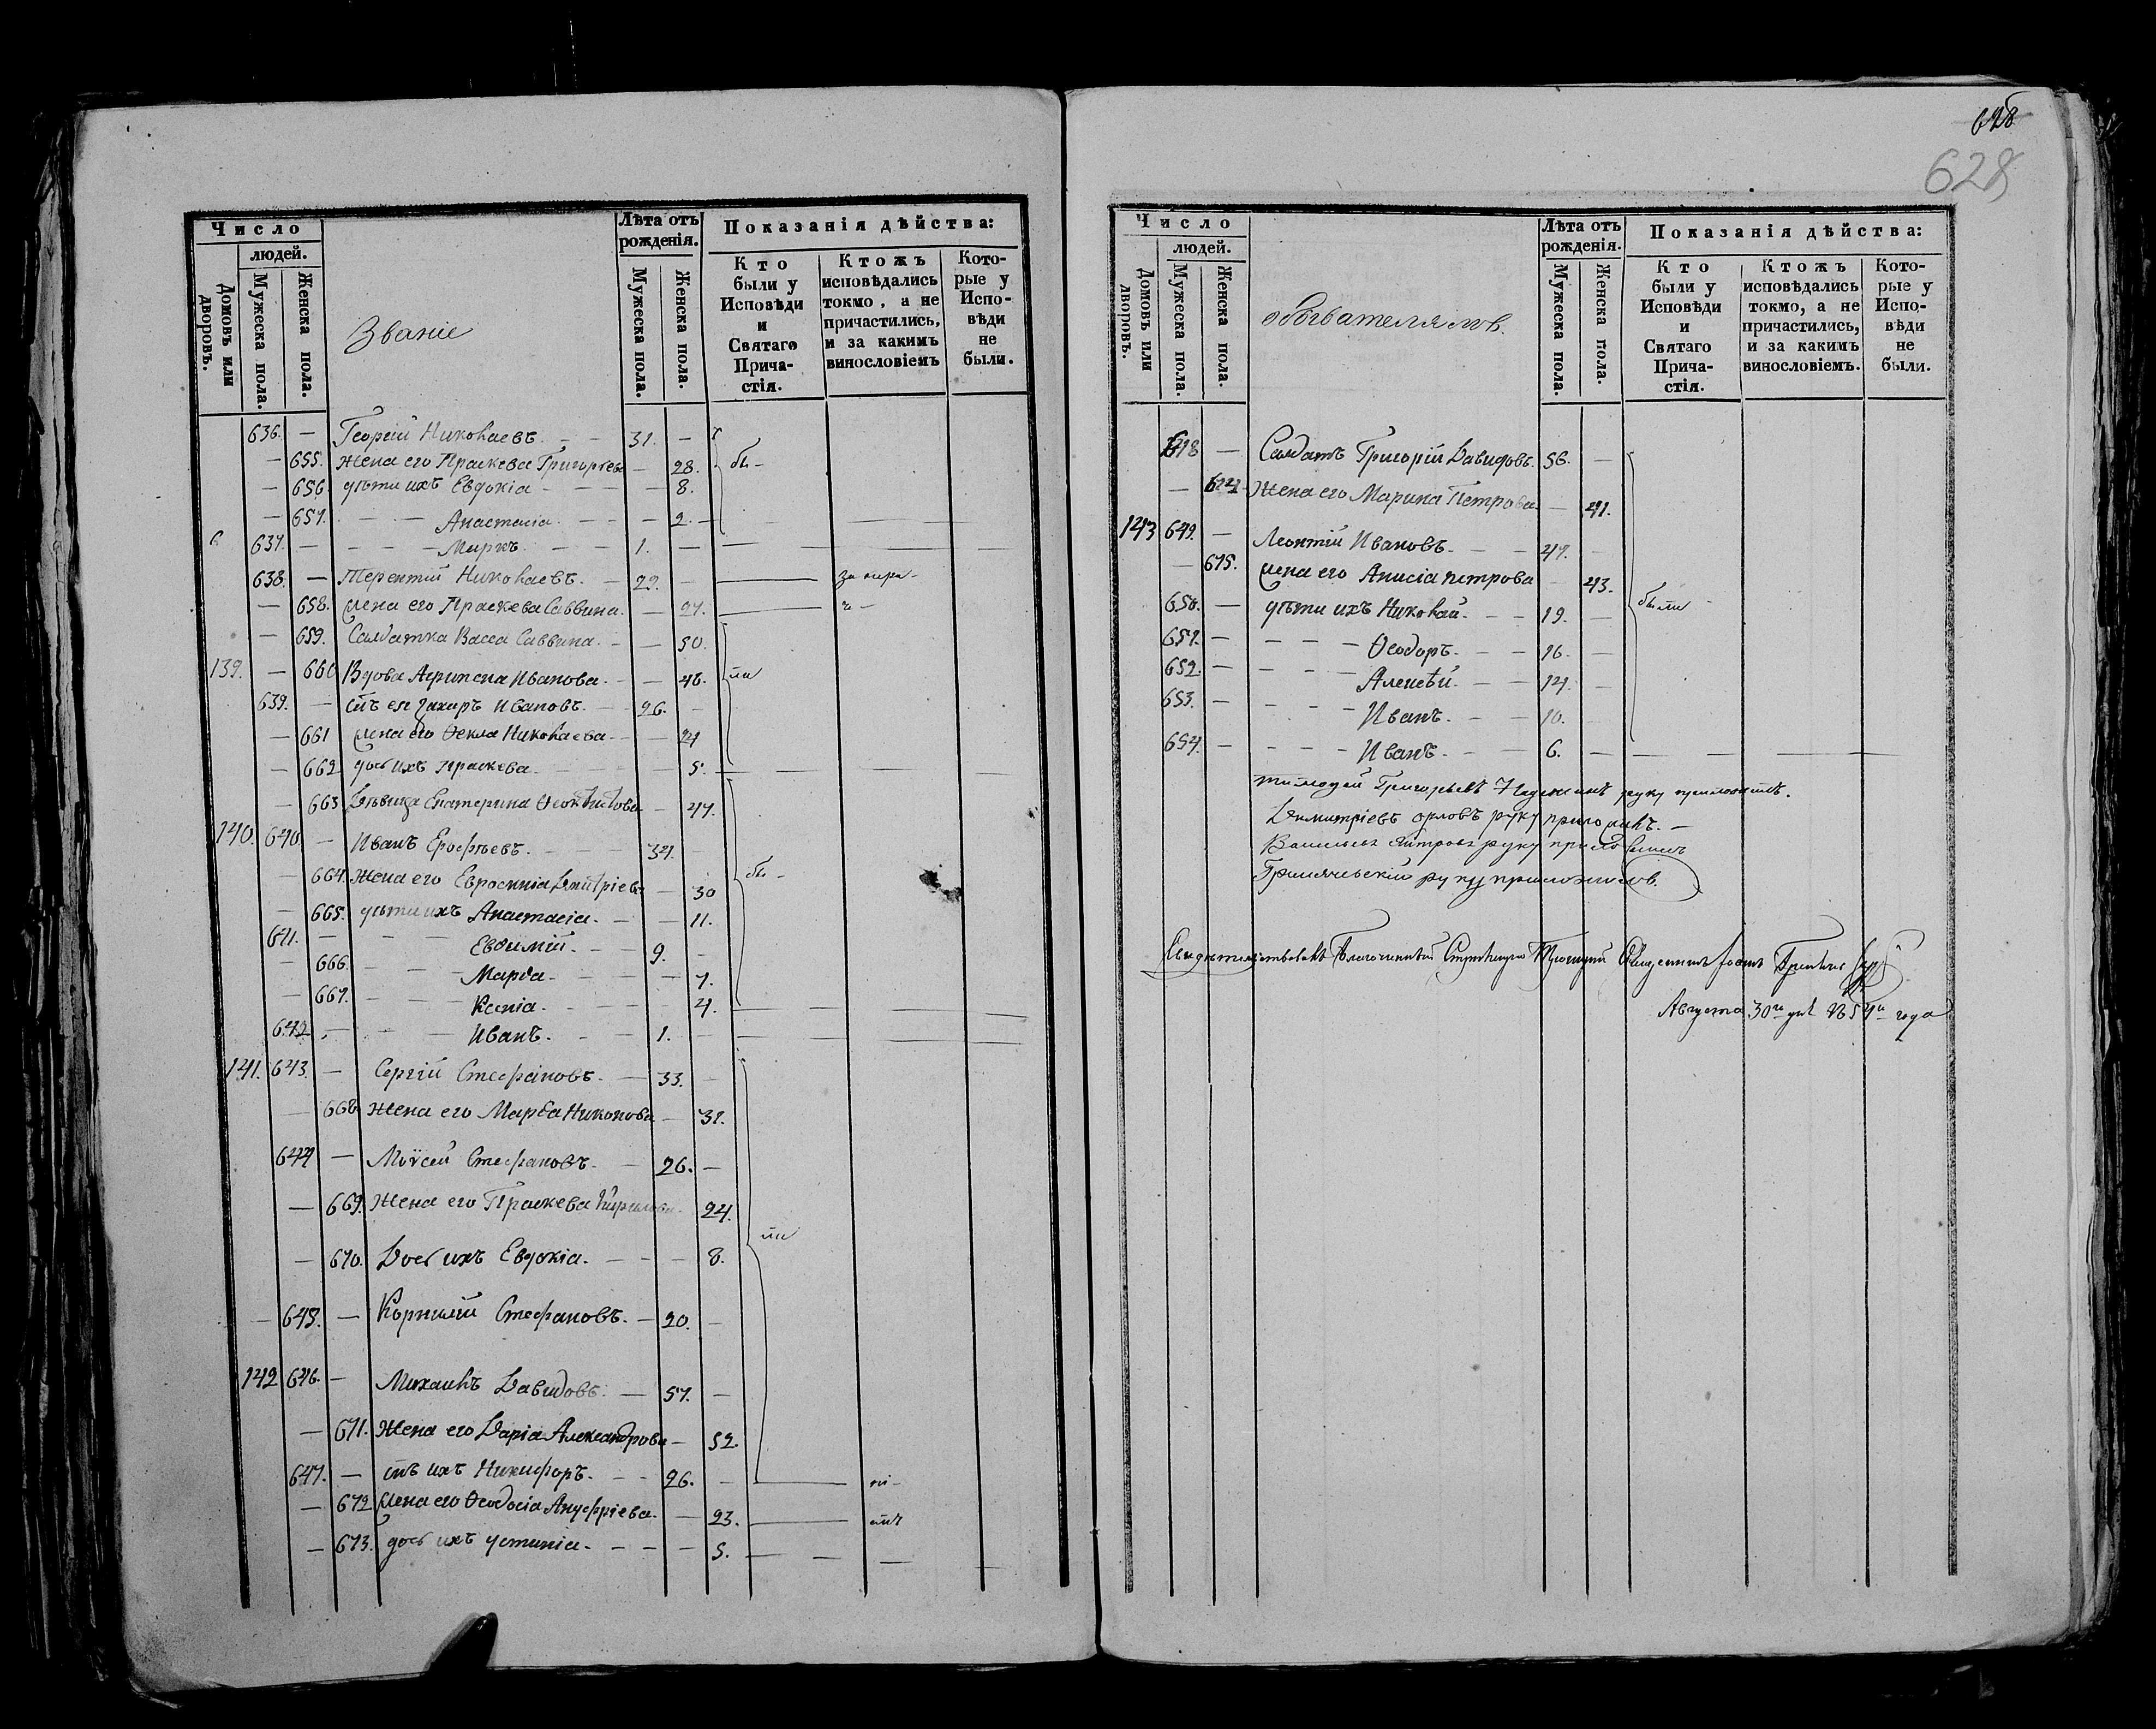 Число
людей.
Домовъ или дворовъ.
Мужеска пола.
Женска пола.
Званіе
Лѣта отъ рожденія.
Мужеска пола.
Женска пола.
Показанія дѣйства:
Кто были у Исповѣди и Святаго Прича-стія.
Ктожъ исповѣдались токмо, а не причастились, и за какимъ винословіемъ
Кото-рые у Испо-вѣди не были.
636. — Георгій Николаевъ. — — 31. —
— 655. Жена его Праскева Григорьева — 28. бы-
— 656. дѣти ихъ Евдокіа — — — 8.
— 657. — — Анастасіа. — — — 2. —
637. — — — — Маркъ. — — 1. —
638. — Терентій Николаевъ. — 29. —
— 658. жена его Праскева Саввина. — 27.
— 659. Салдатка Васса Саввина. — — 50.
139. — 660 Вдова Агрипена Иванова. — — 46. ли
639. — сынъ ея Захаръ Ивановъ. — 26. —
— 661 жена его Ѳекла Николаева — — 24
— 662 дочь ихъ Праскева. — — — 5.
— 663 Дѣвица Екатерина — 47.
140. 640. — Иванъ Ерофѣевъ. — — — 34. —
— 664. Жена его Евросиніа Димитріева — 30 бы-
— 665. дѣти ихъ Анастасіа. — — 11.
641. — — — Евѳимій. — — 9. —
— 666. — — — Марѳа. — — — 7.
— 667. — — — Ксеніа. — — — 4.
642. — — — Иванъ. — — 1. —
141. 643. — Сергій Стефановъ. — 33. —
— 668. жена его Марѳа Никонова — 31.
644 — Моѵсей Стефановъ. — 26. —
— 669. Жена его Праскева Кирилова. 24.
— 670. Дочь ихъ Евдокіа. — — — 8. ли
— 645. — Корнилій Стефановъ. — 20. —
142 646. — Михаилъ Давидовъ. — 57. —
— 671. Жена его Даріа Александрова — 52.
647. — сынъ ихъ Никифоръ. — — 26. —
— 672 жена его Ѳеодосіа Ануфріева. — 23.
— 673. дочь ихъ Устиніа. — — — 5.
628
628
Число
людей.
Домовъ или дворовъ.
Мужеска пола.
Женска пола.
обывателямъ.
Лѣта отъ рожденія.
Мужеска пола.
Женска пола.
Показанія дѣйства:
Кто были у Исповѣди и Святаго Прича-стія.
Ктожъ исповѣдались токмо, а не причастились, и за какимъ винословіемъ.
Кото-рые у Испо-вѣди не были.
648 — Салдатъ Григорій Давидовъ. 56. —
— 674 Жена его Марина Петрова. — 41.
143 649. — Леонтій Ивановъ. — — 47. —
— 675. жена его Анисіа Петрова — 43.
650. — дѣти ихъ Николай. — — 19. — были
651. — — — — Ѳеодоръ. — — 16. —
652. — — — — Алексѣй. — — 14. —
653. — — — — Иванъ. — — 10. —
654. — — — — Иванъ. — — 6. —
Григорьевъ руку приложилъ.
Димитріевъ Орловъ руку приложилъ. —
Васильевъ руку приложилъ
руку приложилъ.
Свидѣтельствовалъ Благочинный Священникъ Іоаннъ
Августа 30го дня 1854го года